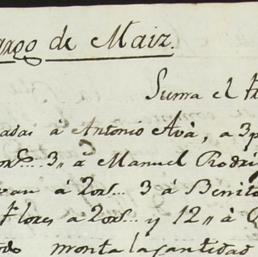 argo de Maiz.
Suma el
adas à Antonio Avà, a 3p
3,, à Manuel Rodri
a 2 rs... 3 à Benito
Flores a 2 rs... y 12,, à
monta la cantidad